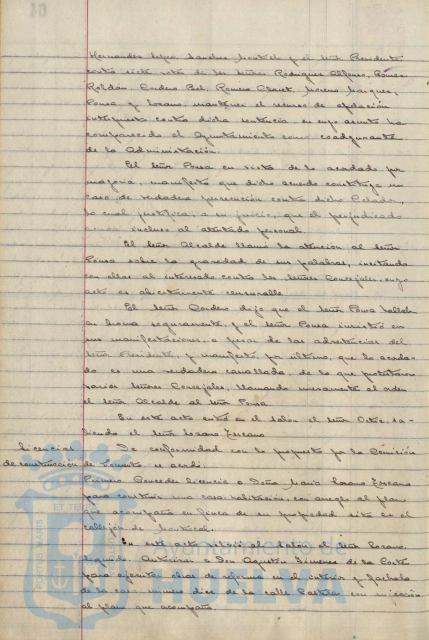 Hernandez Lopez Sanchez y el Señor Presidente
contra siete votos de los Señores Rodriguez Alfonso,
Roldan, Cordero Bel, Romero Claret, Moreno Marquez,
Ponce y Lozano, mantener el recurso de apelación
interpuesto contra dicha sentencia en cuyo asunto ha
comparecido el Ayuntamiento como coadyuvante
de la Administración.
El Señor Ponce en vista de lo acordado por
mayoría, manifestó que dicho acuerdo constituye un
caso de verdadera persecución contra dicho Celador,
lo cual justifica, a su juicio, que el perjudicado
incluso al atentado personal.
El Señor Alcalde llamó la atención al Señor
Ponce sobre la gravedad de sus palabras, incitando
con ellas al interesado contra los Señores Concejales, cuyo
acto es abiertamente censurable.
El Señor Cordero dijo que el Señor Ponce hablaba
en broma seguramente, y el Señor Ponce insistió en
sus manifestaciones, a pesar de las advertencias del
Señor Presidente, y manifestó, por último, que lo acorda-
do es una verdadera canallada, de lo que protestaron
varios Señores Concejales, llamando nuevamente al orden
el Señor Alcalde al Señor Ponce.
En este acto entró en el Salon el Señor Ortiz, sa-
liendo el Señor Lozano Ezcano.
Licencias De conformidad con lo propuesto por la Comisión
de construcción de Fomento se acordó:
Primero. Conceder licencia a Doña María Lozano Ezcano
para construir una casa habitación, con arreglo al plano
que acompaña en finca de su propiedad sita en el
callejon de Montrocal.
En este acto volvió al Salon el Señor Lozano.
Segundo. Autorizar a Don Agustin Jimenez de la Corte
para ejecutar obras de reforma en el interior y fachada
de la casa numero diez de la calle Castelar con sujeción
al plano que acompaña.
Ayuntamiento de
HUELVA